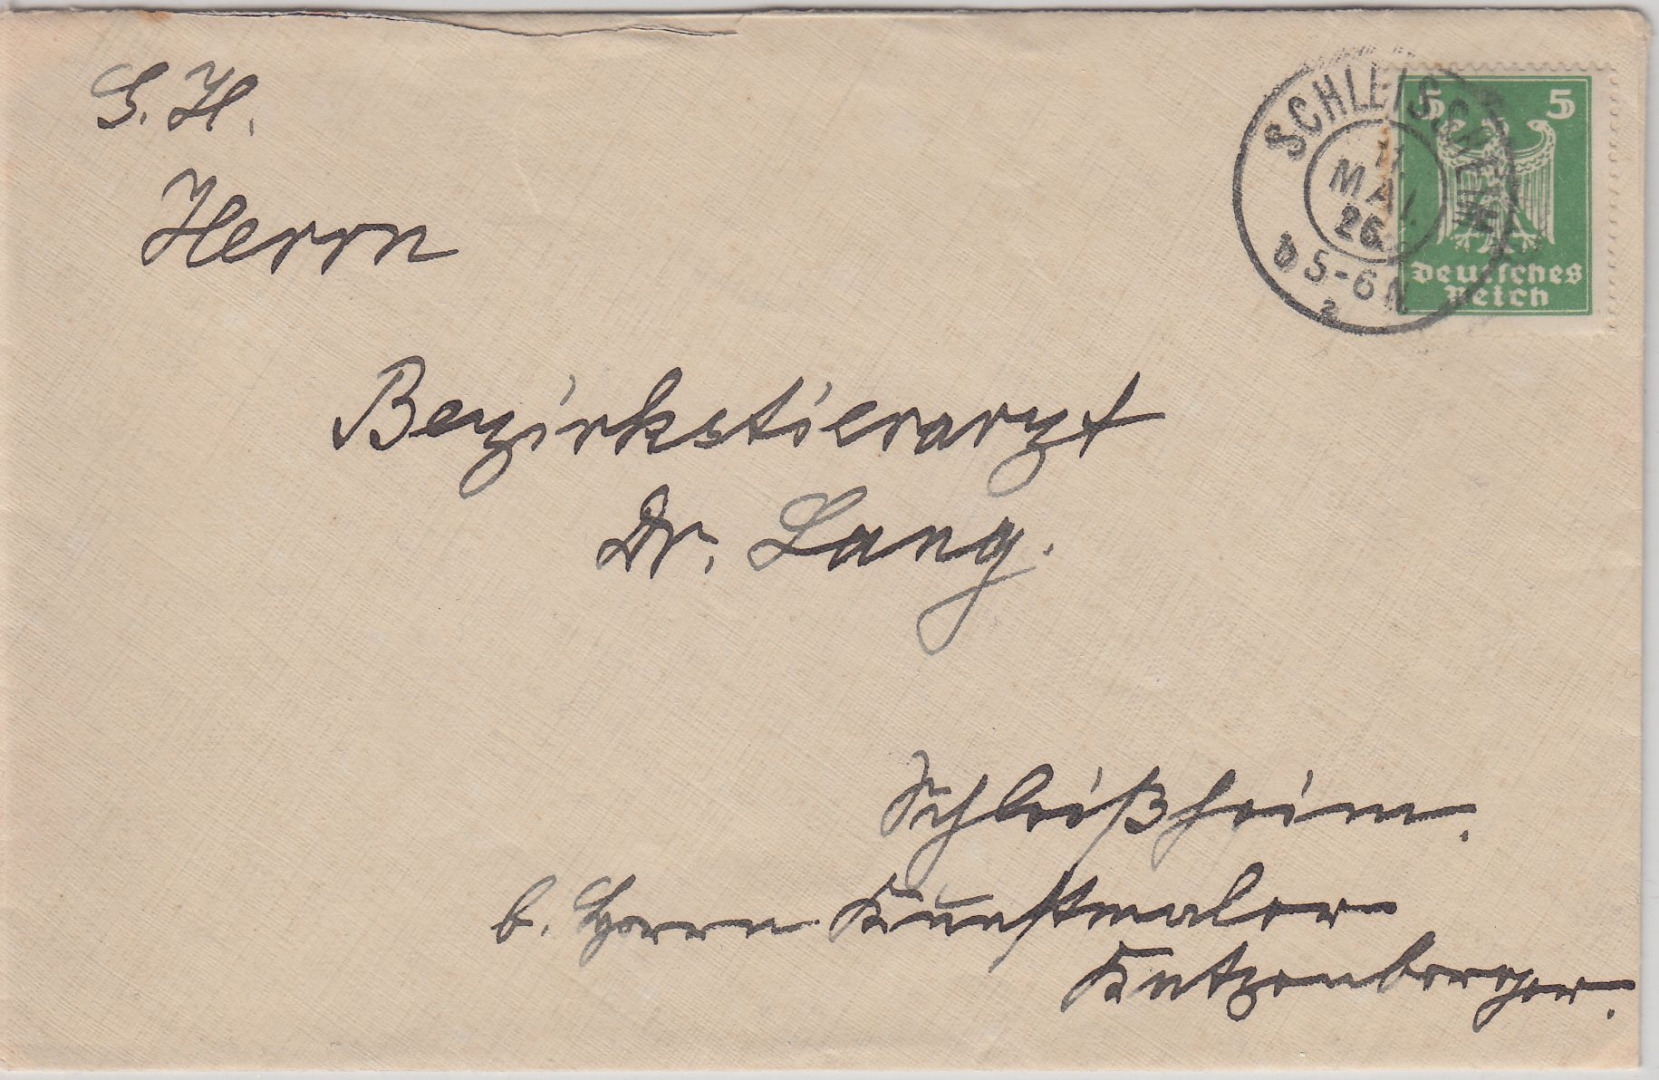 S. H.
Herrn
Bezirkstierarzt
Dr. Lang.
Schleißheim.
b. Herrn Kunstmaler
Katzenberger.
SCHLEISSHEIM
MAI
26
b 5-6 N
2
5 5
Deutsches
Reich